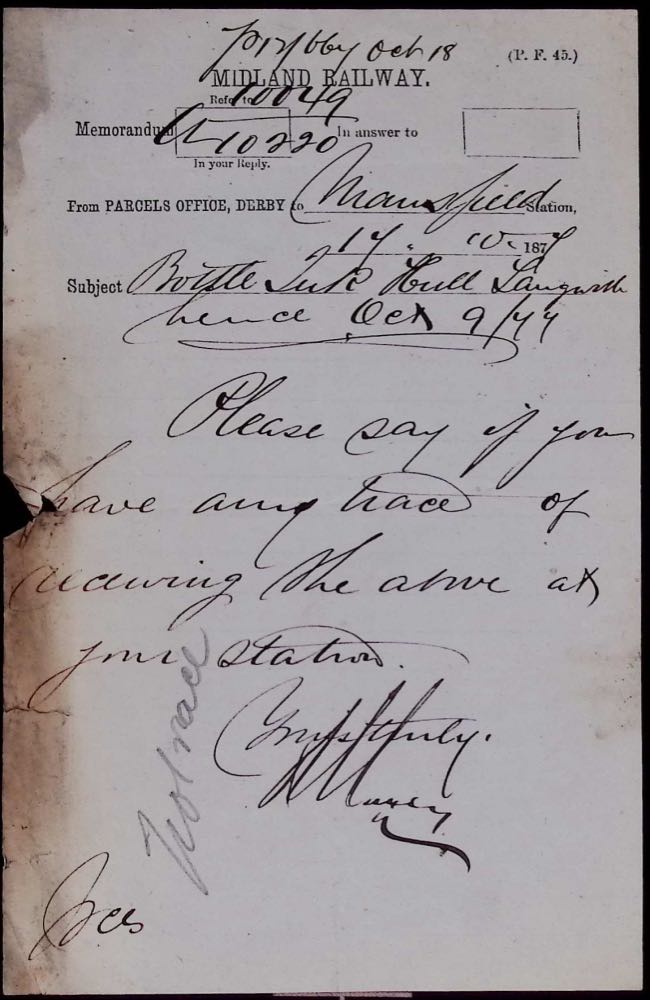 Oct 18
(P. F. 45.)
MIDLAND RAILWAY.
Refer to 10049
Memorandum 10220 In answer to
In your Reply.
From PARCELS OFFICE, DERBY to Mansfield Station,
17. 10. 1877
Subject Bottle Ink Hull Langwith
hence Oct 9/77
Please say if you
have any trace of
receiving the above at
your station.
Yours truly.
No trace